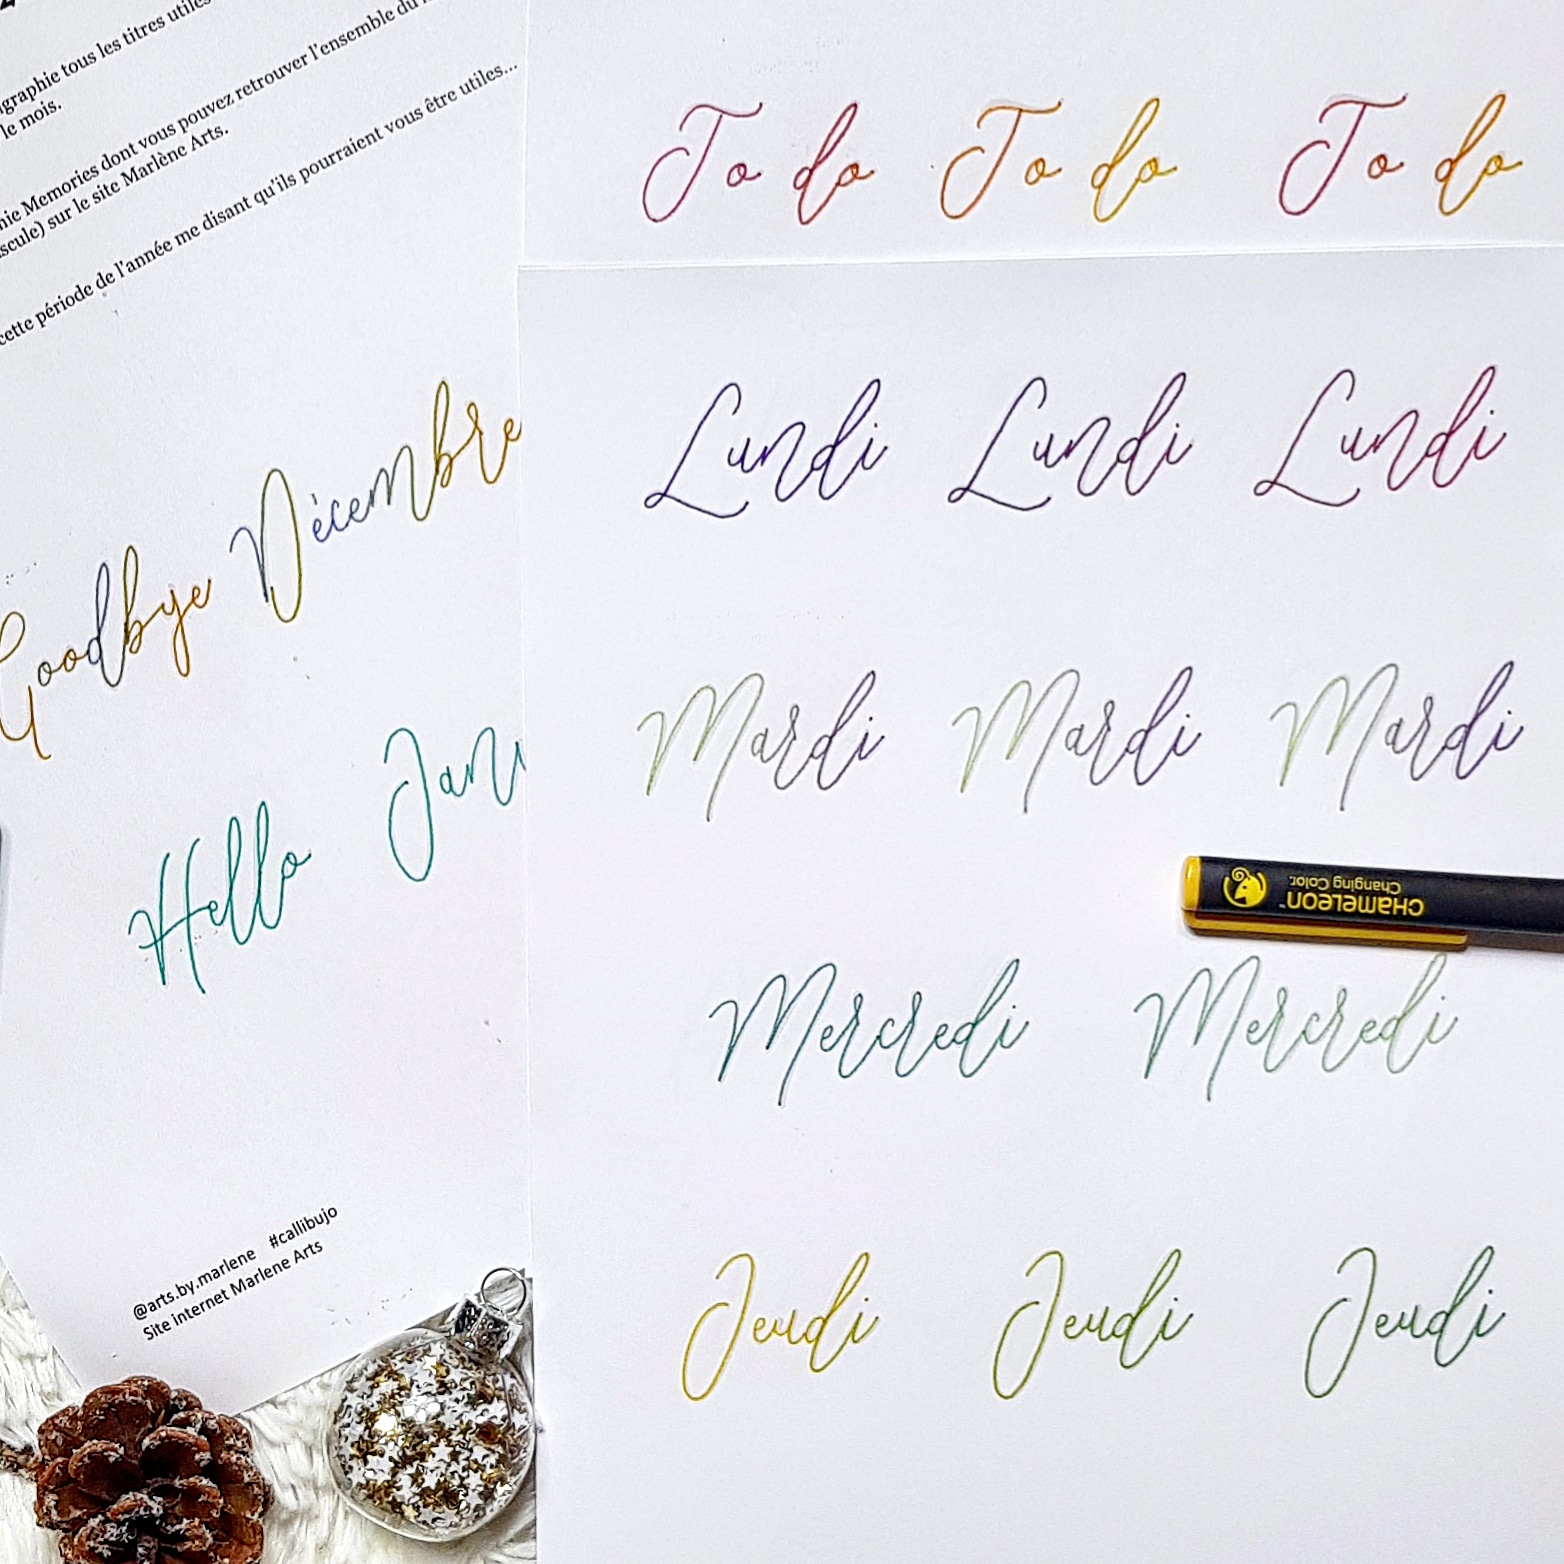 graphie tous les titres utiles
le mois.
Memories dont vous pouvez retrouver l'ensemble du
sur le site Marlène Arts.
cette période de l'année me disant qu'ils pourraient vous être utiles...
Goodbye Décembre
Hello Janv
@arts.by.marlene #callibujo
Site internet Marlene Arts
To do To do To do
Lundi Lundi Lundi
Mardi Mardi Mardi
CHAMELEON™
Changing Color.
Mercredi Mercredi
Jeudi Jeudi Jeudi